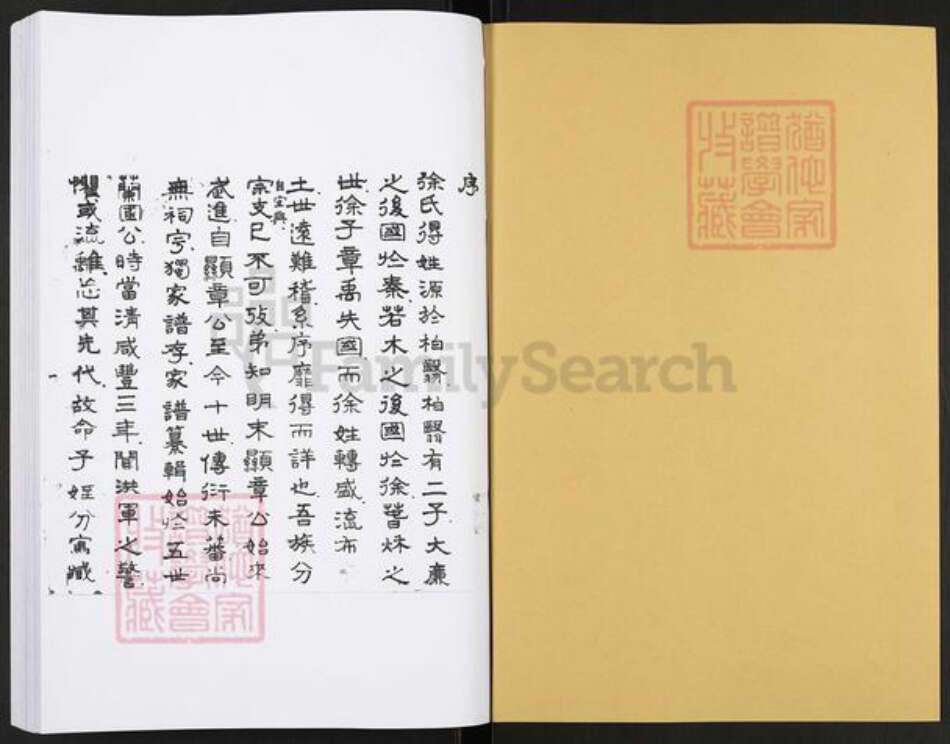 序
徐氏得姓源於柏翳柏翳有二子大廉
之後國於秦若木之後國於徐春秋之
世徐子章禹失國而徐姓轉盛流布
土世遠難稽系序靡得而詳也吾族分
自宜興
宗支已不可攷弟知明末顯章公始來
武進自顯章公至今十世傳衍未蕃尚
無祠宇獨家譜存家譜纂輯始於五世
蘭圃公時當清咸豐三年間洪軍之警
懼或流離忘其先代故命子姪分寫藏
猶他家
譜學會
收藏
猶他家
譜學會
收藏
FamilySearch